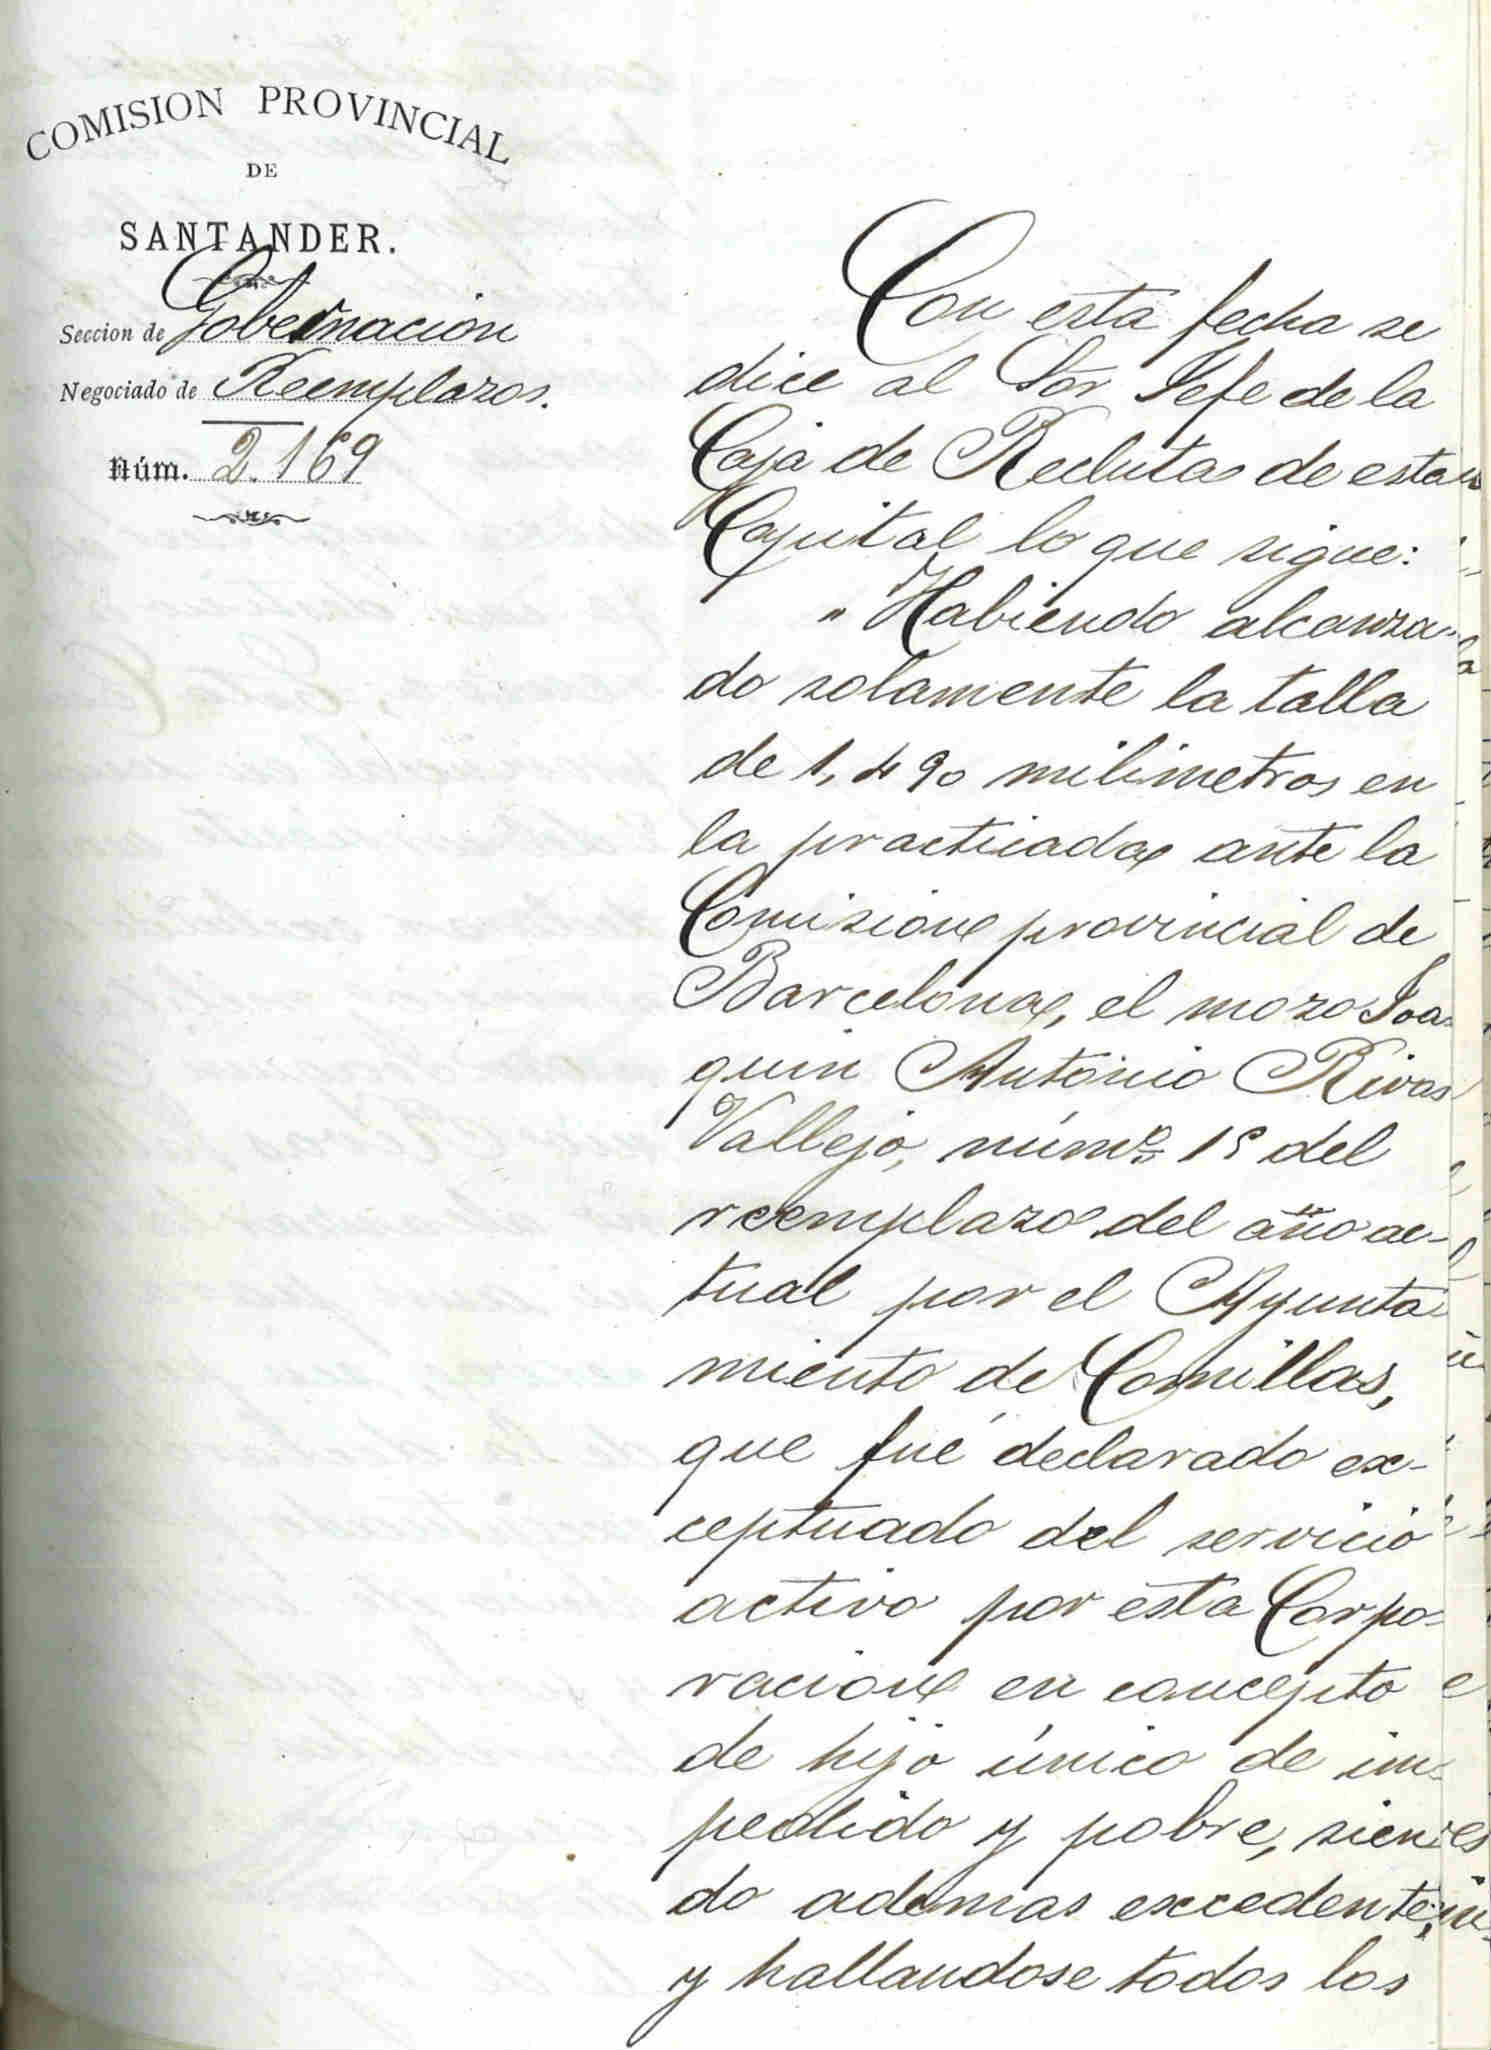 COMISION PROVINCIAL
DE
SANTANDER.
Seccion de Gobernacion
Negociado de Reemplazos.
Núm. 2.169
Con esta fecha se
dice al Sor Jefe de la
Caja de Reclutas de esta
Capital lo que sigue:
"Habiendo alcanza-
do solamente la talla
de 1,490 milimetros en
la practicada ante la
Comision provincial de
Barcelona, el mozo Joa-
quin Antonio Rivas
Vallejo, númº del
reemplazo del año ac-
tual por el Ayunta
miento de Comillas,
que fué declarado ex-
ceptuado del servicio
activo por esta Corpo-
racion en concepto
de hijo único de im-
pedido y pobre, sien
do ademas excedente,
y hallandose todos los